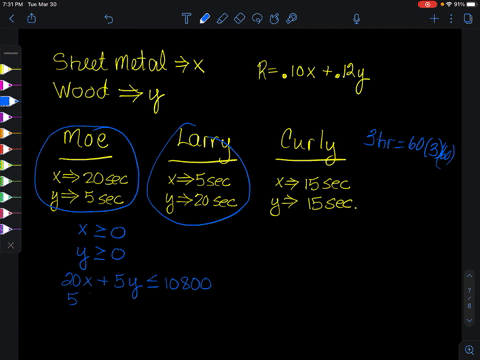 7:31 PM Tue Mar 30
91%
Sheet metal ⇒ x
Wood ⇒ y
R = .10x + .12y
Moe
x ⇒ 20 sec
y ⇒ 5 sec
Larry
x ⇒ 5 sec
y ⇒ 20 sec
Curly
x ⇒ 15 sec
y ⇒ 15 sec.
3 hr = 60(3)(60)
x ≥ 0
y ≥ 0
20x + 5y ≤ 10800
5
7
/
8